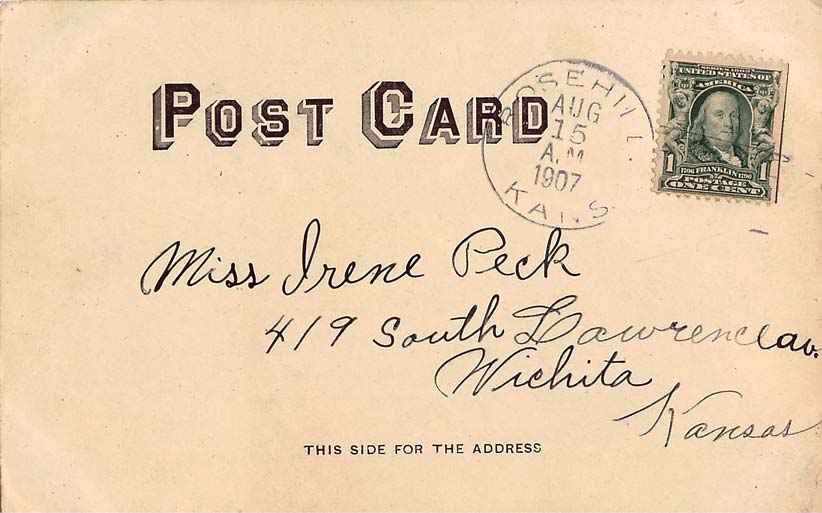 POST CARD
ROSEHILL
AUG
15
A.M
1907
KANS.
SERIES 1902
UNITED STATES OF
AMERICA
1 1706 FRANKLIN 1790 1
POSTAGE
ONE CENT
Miss Irene Peck
419 South Lawrence av.
Wichita
Kansas
THIS SIDE FOR THE ADDRESS